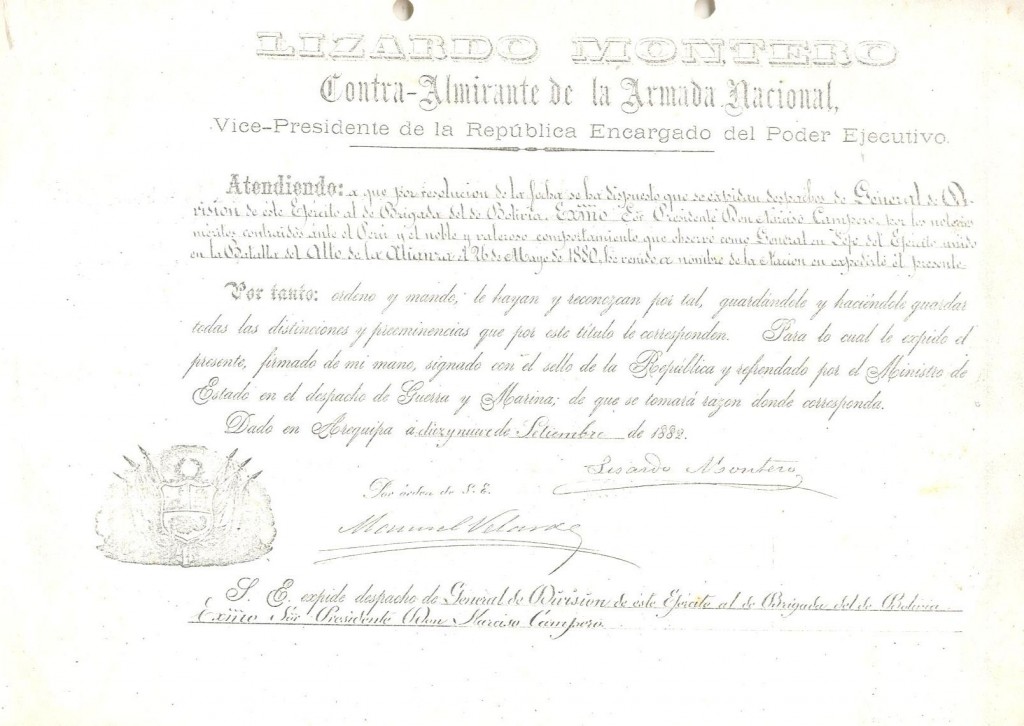 LIZARDO MONTERO
Contra-Almirante de la Armada Nacional,
Vice-Presidente de la República Encargado del Poder Ejecutivo.
Atendiendo: a que por resolucion de la fecha se ha dispuesto que se expidan despachos de General de Di-
vision de este Ejército al de Brigada del de Bolivia, Exmo Sor Presidente Don Narciso Campero, por los notorios
méritos contraidos ante el Perú y el noble y valeroso comportamiento que observó como General en Jefe del Ejército unido
en la Batalla del Alto de la Alianza el 26 de Mayo de 1880, he venido a nombre de la Nacion en expedirle el presente
Por tanto: ordeno y mando, le hayan y reconozcan por tal, guardándole y haciéndole guardar
todas las distinciones y preeminencias que por este título le corresponden. Para lo cual le expido el
presente, firmado de mi mano, signado con el sello de la República y refrendado por el Ministro de
Estado en el despacho de Guerra y Marina; de que se tomará razon donde corresponda.
Dado en Arequipa á diez y nueve de Setiembre de 1882.
Lisardo Montero
Por órden de S. E.
Manuel Velarde
S. E. expide despacho de General de Division de este Ejército al de Brigada del de Bolivia
Exmo Sór Presidente Don Narciso Campero.